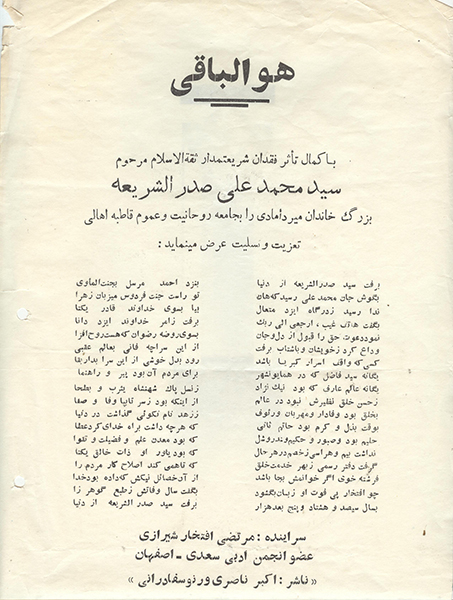 هو الباقی
با کمال تأثر فقدان شریعتمدار ثقةالاسلام مرحوم
سید محمد علی صدر الشریعه
بزرگ خاندان میردامادی را بجامعه روحانیت و عموم قاطبه اهالی
تعزیت و تسلیت عرض مینماید :
برفت سید صدرالشریعه از دنیا بنزد احمد مرسل بجنت الماوی
بگوش جان محمد علی رسید که هان تو راست جنت فردوس میزبان زهرا
ندا رسید زدرگاه ایزد متعال بیا بسوی خداوند قادر یکتا
بگفت هاتف غیب ، ارجعی الی ربك برفت زامر خداوند ایزد دانا
نمود دعوت حق را قبول از دل و جان بسوی روضه رضوان که هست روح افزا
وداع کرد زخویشان و باشتاب برفت از این سراچه فانی بعالم عقبی
کسی که واقف اسرار کبریا باشد رود بدل خوشی از این سرا بدار بقا
یگانه سید فاضل که در همایونشهر برای مردم آن بود پیر و راهنما
یگانه عالم عارف که بود نیك نژاد زنسل پاك شهنشاه یثرب و بطحا
زحسن خلق نظیرش نبود در عالم از اینکه بود زسر تا بپا وفا و صفا
بخلق بود وفادار و مهربان و رئوف ززهد نام نکوئی گذاشت در دنیا
بوقت بذل و کرم بود حاتم ثانی که هرچه داشت براه خدای کرد عطا
حلیم بود و صبور و حکیم که بود معدن علم و فضیلت و تقوا
نداشت بیم و هراسی زخصم در هر حال که بود یاور او ذات خالق یکتا
گرفت دفتر رسمی زبهر خدمت خلق که تا همی کند اصلاح کار مردم را
فرشته خوی اگر خوانمش بجا باشد از آن خصائل نیکش که داده بود خدا
چو افتخار پی فوت او زبان بگشود بگفت سال وفاتش زطبع گوهر زا
بسال سیصد و هشتاد و پنج بعد هزار برفت سید صدر الشریعه از دنیا
سراینده : مرتضی افتخار شیرازی
عضو انجمن ادبی سعدی - اصفهان
« ناشر : اکبر ناصری ورنوسفادرانی »